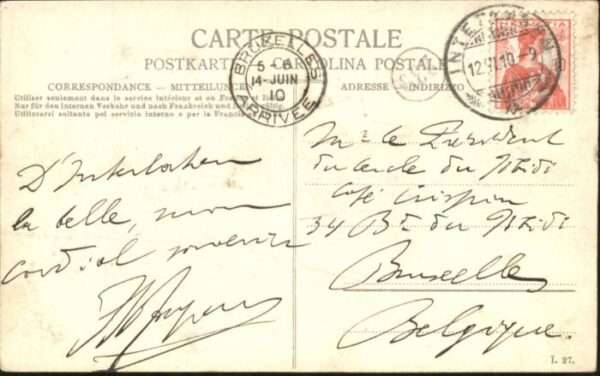 CARTE POSTALE
POSTKARTE CARTOLINA POSTALE
CORRESPONDANCE - MITTEILUNGEN
ADRESSE - INDIRIZZO
Utiliser seulement dans le service intérieur et en
Nur für den internen Verkehr und nach Frankreich und
Utilizzarsi soltanto pel servizio interno e per la
BRUXELLES
5-6
14-JUIN
10
ARRIVEE
INTERLAKEN
12.VI.10.-9
D'Interlaken
la belle, mon
cordial souvenir
Mr le Président
du cercle du Midi
Café Crispin
34 Bd du Midi
Bruxelles
Belgique.
L 27.